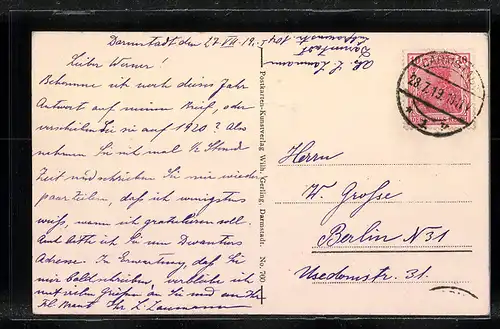 Darmstadt den 27 VII. 19.
Abs. L. Zaumann
Darmstadt
104
Lieber Werner!
Bekomme ich noch dieses Jahr
Antwort auf meinen Brief, oder
verschieben Sie auf 1920? Also
nehmen Sie sich mal ½ Stunde
Zeit und schreiben Sie mir wieder
paar Zeilen, daß ich wenigstens
weiß, wann ich gratulieren soll.
Auch bitte ich Sie um
Adresse. In Erwartung, daß Sie
mir bald schreiben, verbleibe ich
mit vielen Grüßen an Sie und an Ihr
Ihr L. Zaumann
Postkarten-Kunstverlag Wilh. Gerling, Darmstadt. No. 700
DARMSTADT
28.7.19.
Herrn
W. Grosse
Berlin N 31
Usedomstr. 31.